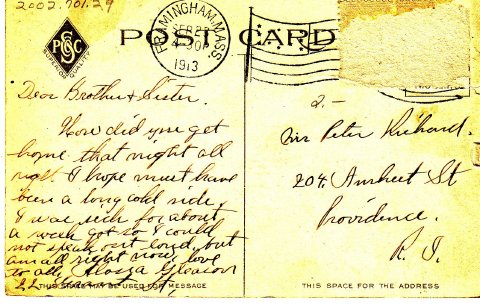 2002.701.29
PSC Co
SUPERIOR QUALITY
POST CARD
FRAMINGHAM, MASS.
SEP
4 30 P
1913
Dear Brother & Sister.
How did you get
home that night all
right I hope must have
been a long cold ride,
I was sick for about
a week got so I could
not speak out loud, but
am all right now, love
to all, Gleason
THIS SPACE MAY BE USED FOR MESSAGE
2.-
Mr Peter Richard.
204 Amherst St
Providence.
R. I.
THIS SPACE FOR THE ADDRESS